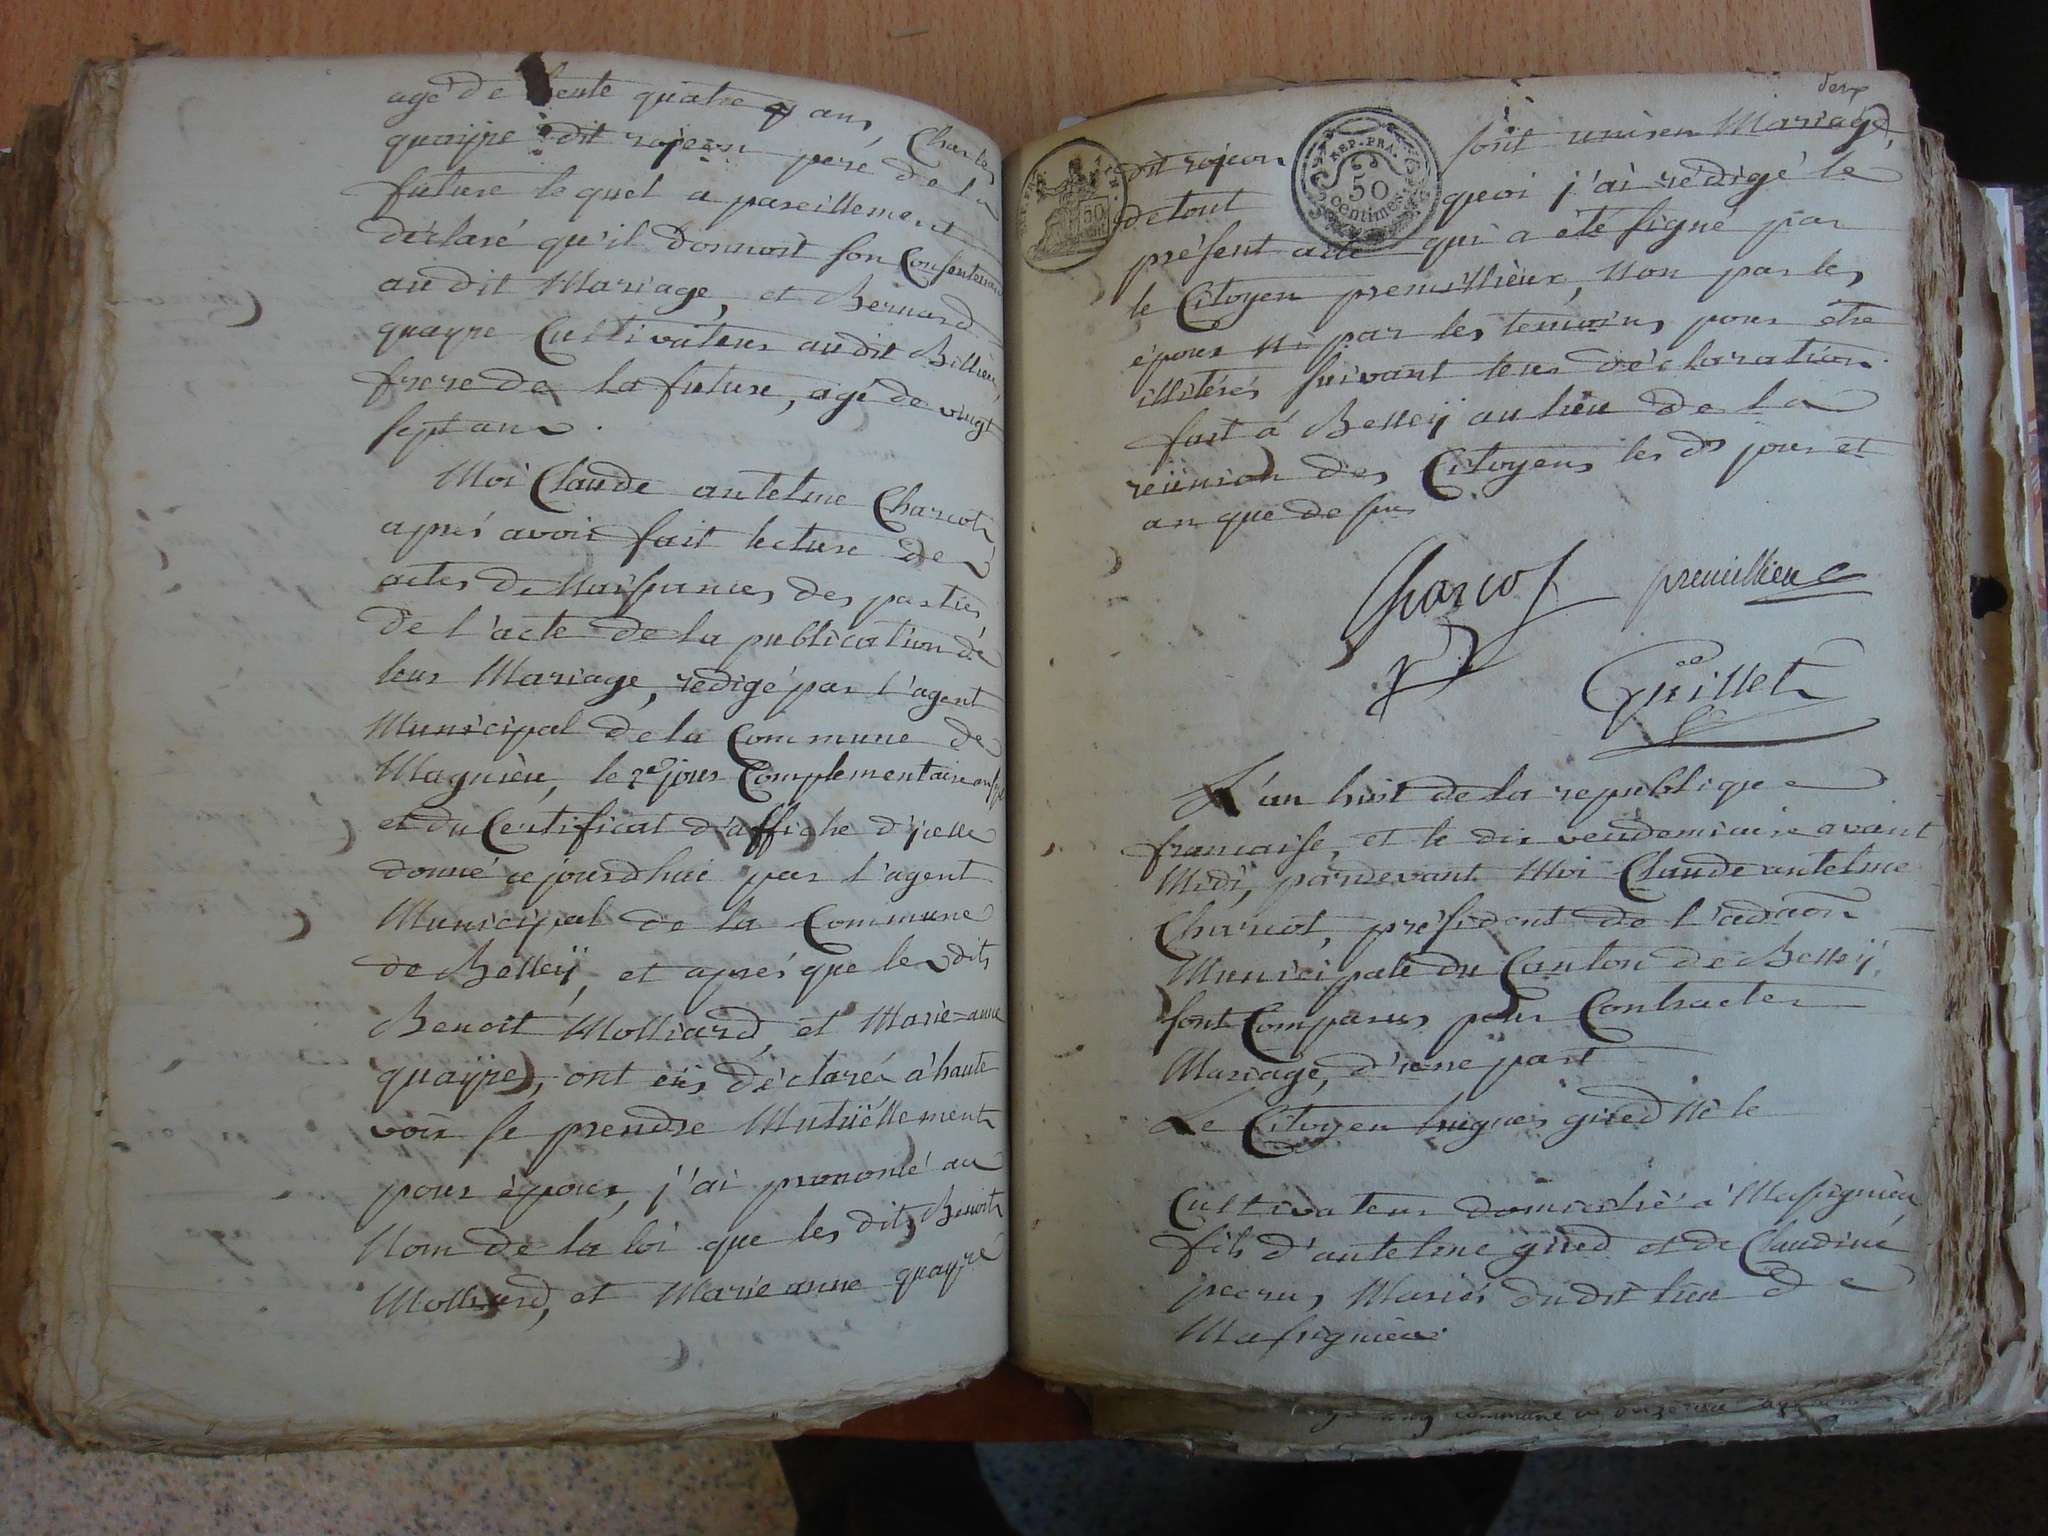 agé de trente quatre ans, Charles
quaÿpe dit rojeon pere de la
future lequel a pareillement
déclaré qu'il donnoit son Consentement
audit Mariage, et Bernard
quaype Cultivateur audit Billieu,
frere de la future, agé de vingt
sept ans.
Moi Claude antelme Charcot
aprés avoir fait lecture des
actes de Naissances des parties
de l'acte de la publication de
leur Mariage, redigé par l'agent
Municipal de la Commune de
Magnieu, le 2e jour Complementaire
et du Certificat d'affiche d'icelle
donné ajourdhui par l'agent
Municipal de la Commune
de Belleÿ, et aprés que lesdits
Benoit Molliard, et Marie=anne
quaÿpe, ont eüs déclarés à haute
voix se prendre Mutüéllement
pour époux, j'ai prononcé au
Nom de la loi que les dits Benoit
Molliard, et Marie anne quaype
deux
dit rojeon sont unis en Mariage,
detout quoi j'ai redigé le
présent acte qui a été signé par
le Citoyen premillieux, Non par les
époux Ni par les temoins pour être
illiterés suivant leur déclaration.
fait á Belleÿ au lieu de la
reünion des Citoyens les ds jour et
an que dessus
REP. FRA.
50
centimes
50
Charcot premillieu
Guillet
L'an huit de la republique
francaise, et le dix vendemiaire avant
Midi, pardevant Moi Claude antelme
Charcot, président de l'adaõn
Municipale du Canton de Belleÿ
sont Comparus pour Contracter
Mariage, d'une part
Le Citoyen hugues gired Né le
Cultivateur domicilié à Massignieu
fils d'antelme gired et de Claudine
peccus, Mariés dudit lieu de
Massignieu.
commune